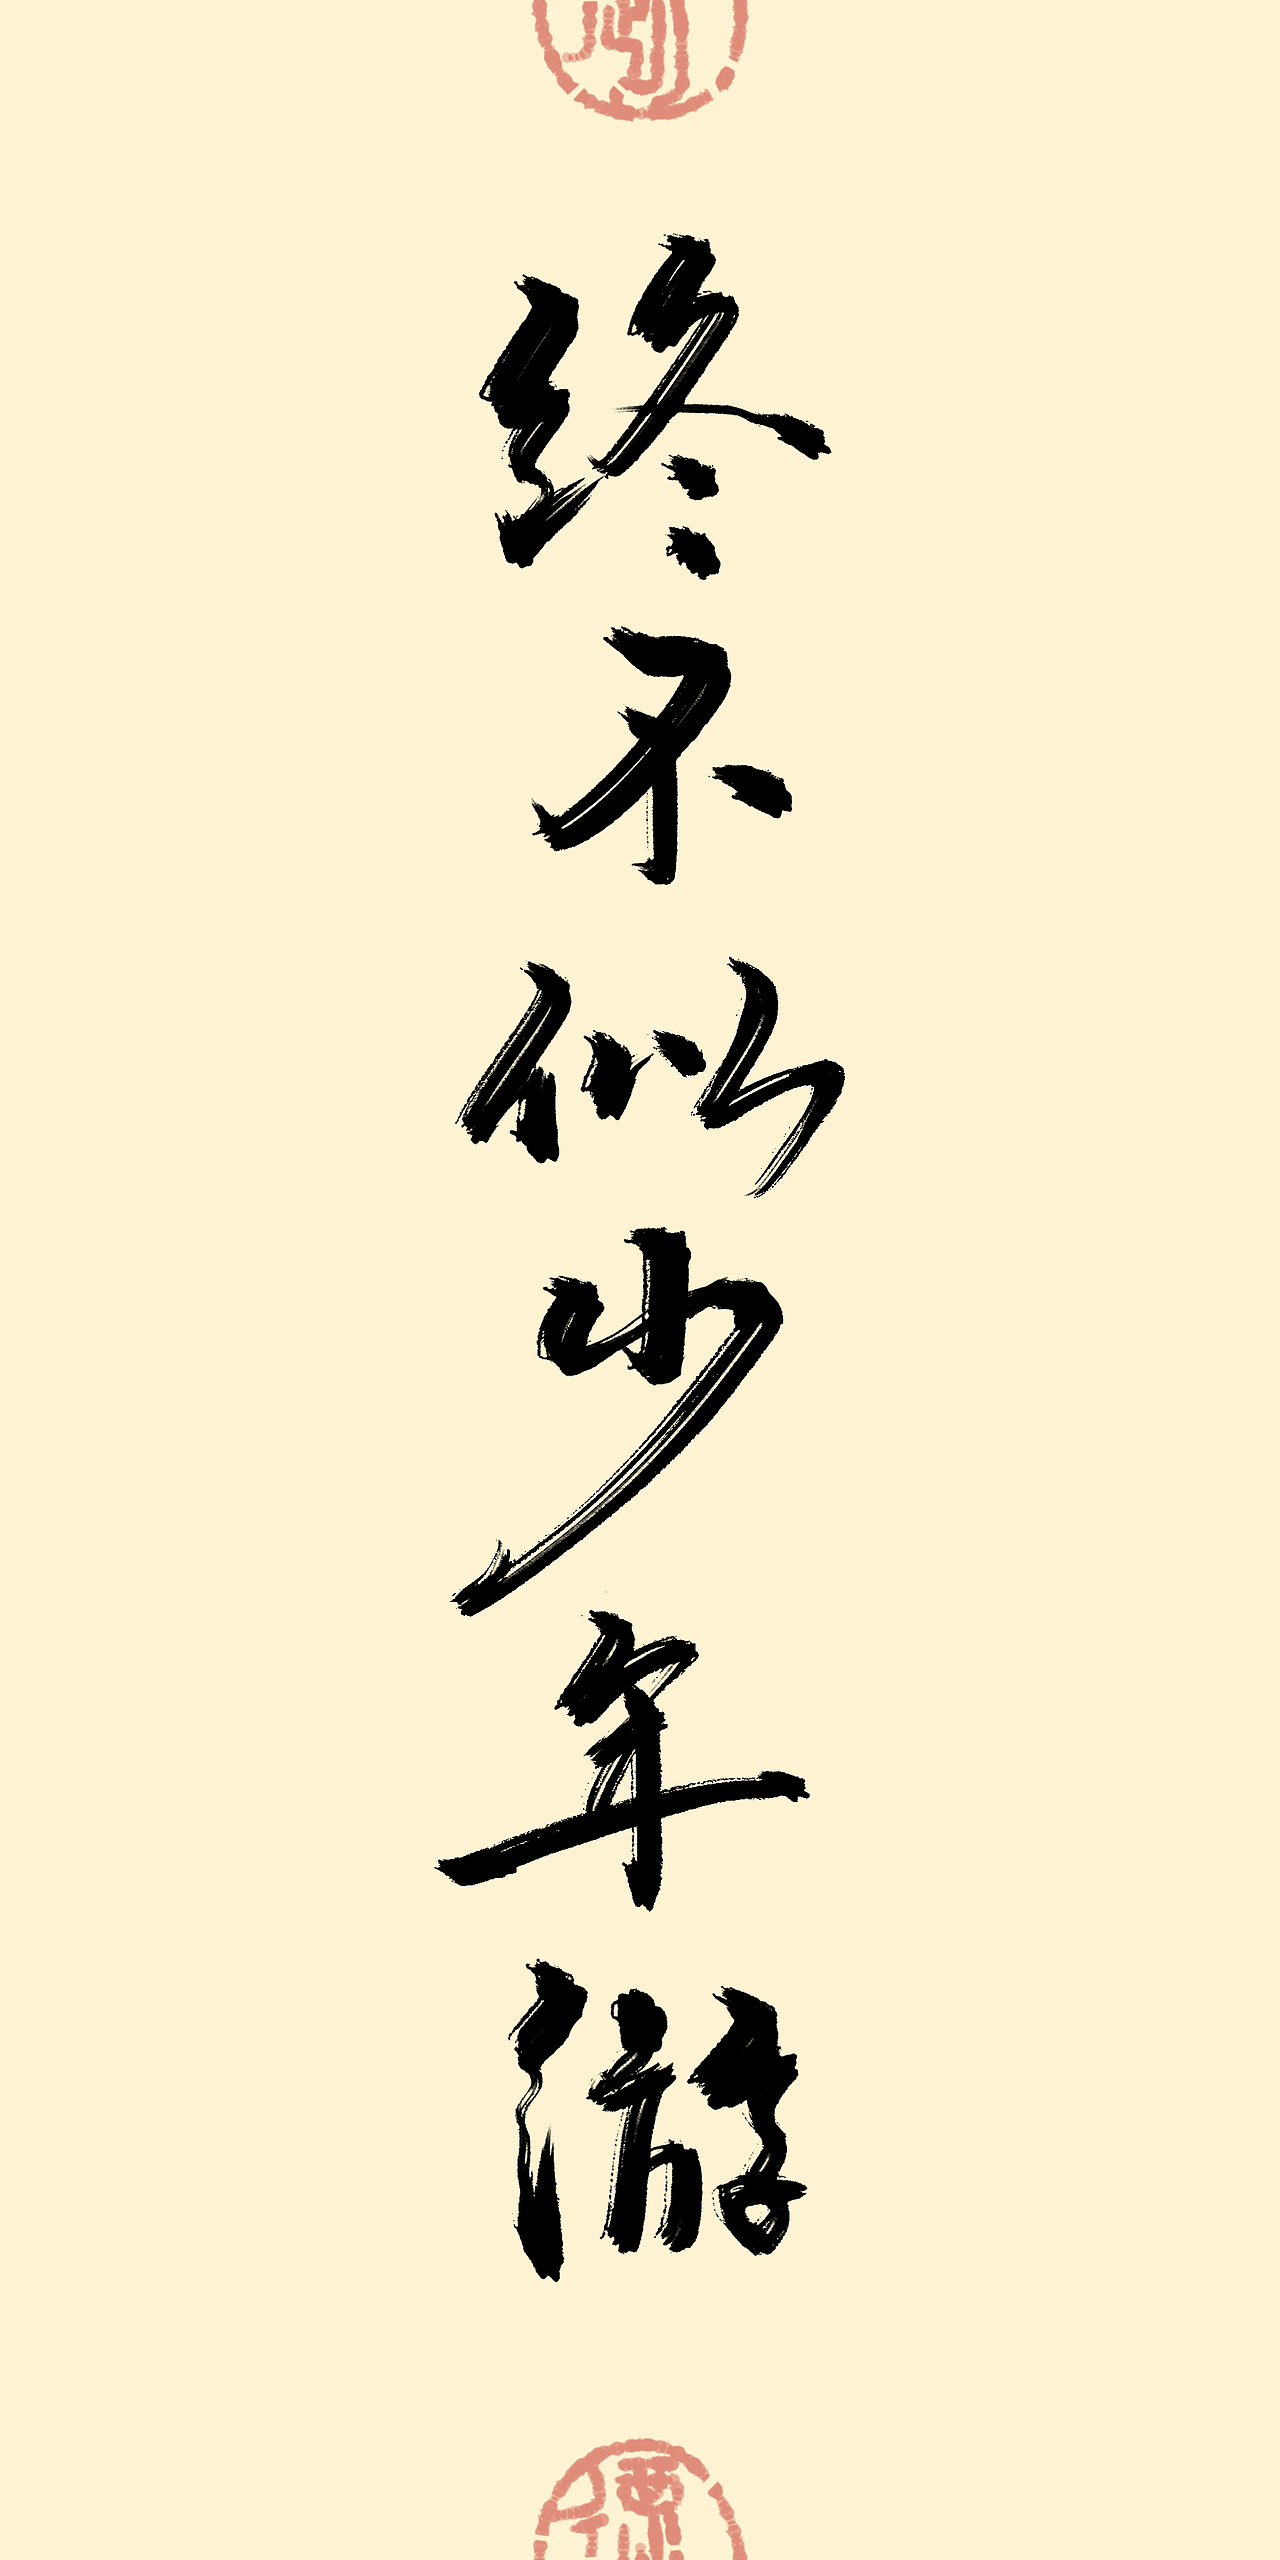 终不似少年游